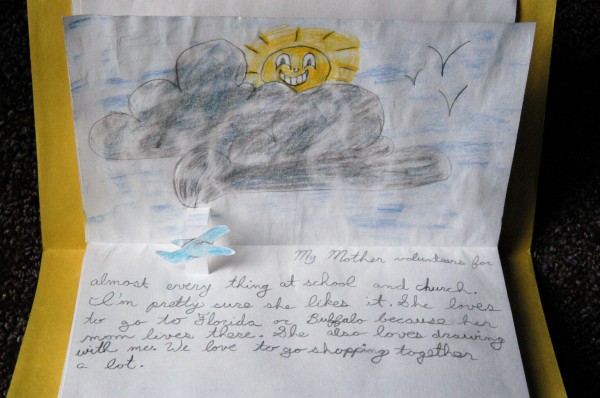 My Mother volunteers for
almost every thing at school and church.
I'm pretty sure she likes it. She loves
to go to Florida or Buffalo because her
mom lives there. She also loves drawing
with me. We love to go shopping together
a lot.